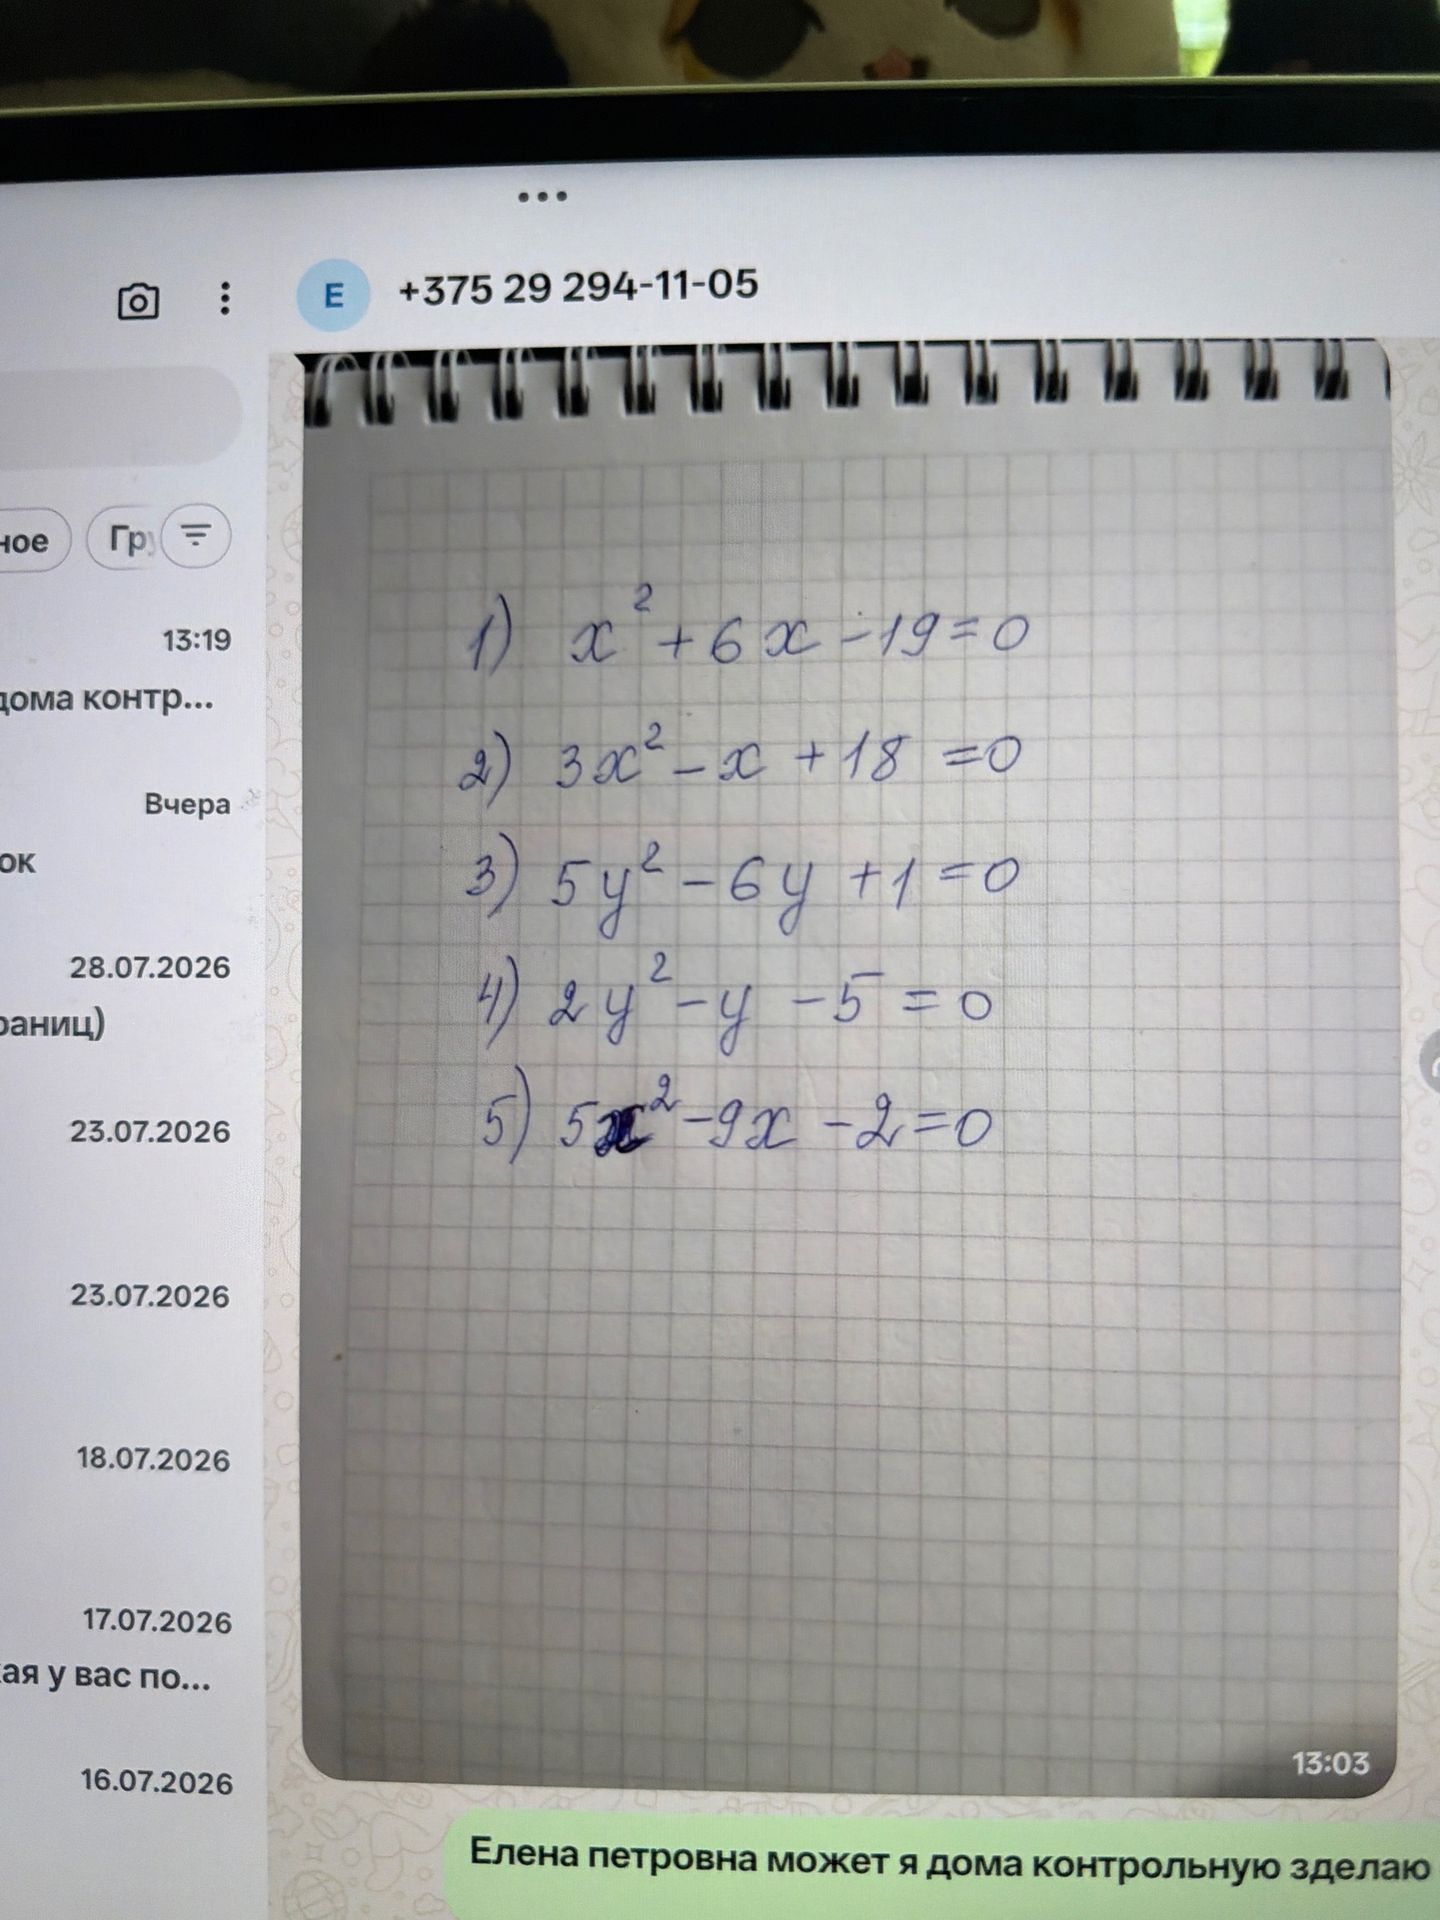 E +375 29 294-11-05
ное Гр
13:19
дома контр...
Вчера
ок
28.07.2026
раниц)
23.07.2026
23.07.2026
18.07.2026
17.07.2026
кая у вас по...
16.07.2026
1) x² + 6x - 19 = 0
2) 3x² - x + 18 = 0
3) 5y² - 6y + 1 = 0
4) 2y² - y - 5 = 0
5) 5x² - 9x - 2 = 0
13:03
Елена петровна может я дома контрольную зделаю